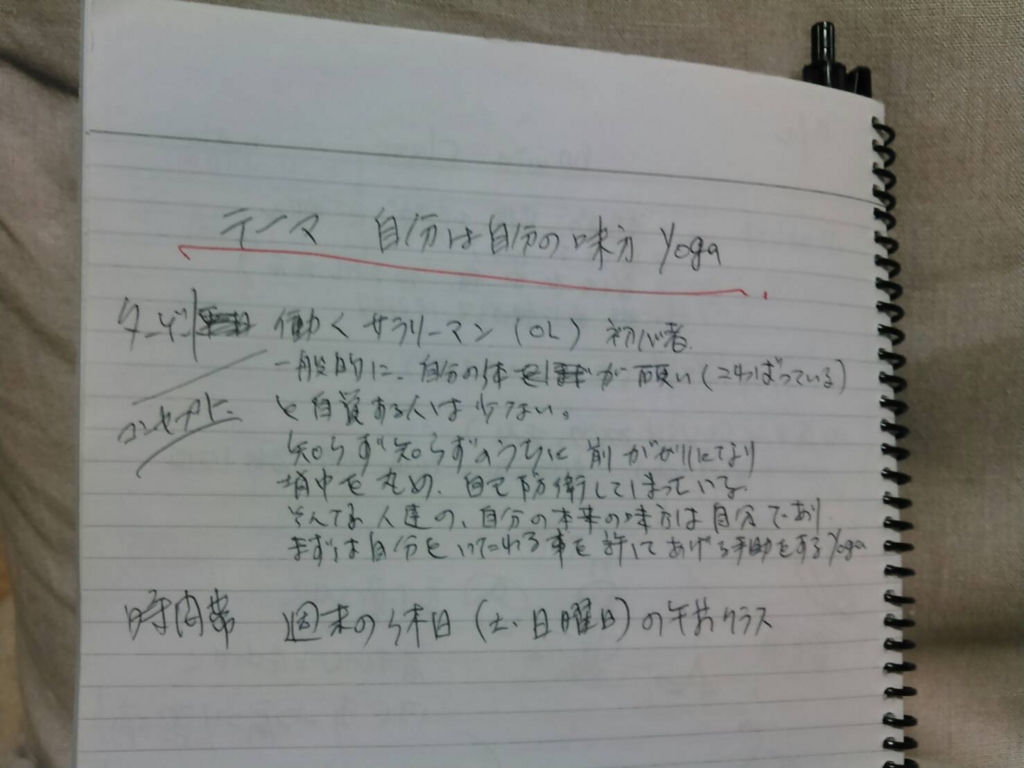 テーマ 自分は自分の味方 Yoga
ターゲット 働くサラリーマン(OL) 初心者
一般的に、自分の体が固い(こわばっている)
コンセプト と自覚ある人は少ない。
知らず知らずのうちに前かがみになり
背中を丸め、自己防衛してしまっている
そんな人達の、自分の本来の味方は自分であり
まずは自分をいたわる事を許してあげる手助をするYoga
時間帯 週末の休日(土、日曜日)の午前クラス